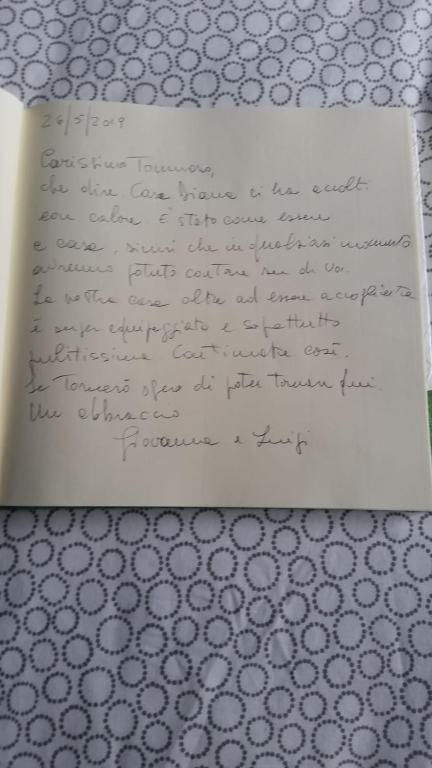 26/5/2019
Carissimo Tommaso,
che dire. Casa Diana ci ha accolti
con calore. E' stato come essere
a casa, sicuri che in qualsiasi momento
avremmo potuto contare su di voi.
La vostra casa oltre ad essere accogliente
è super equipaggiata e soprattutto
pulitissima. Continuate così.
Se Tornerò spero di poter tornare qui.
Un abbraccio
Giovanna e Luigi